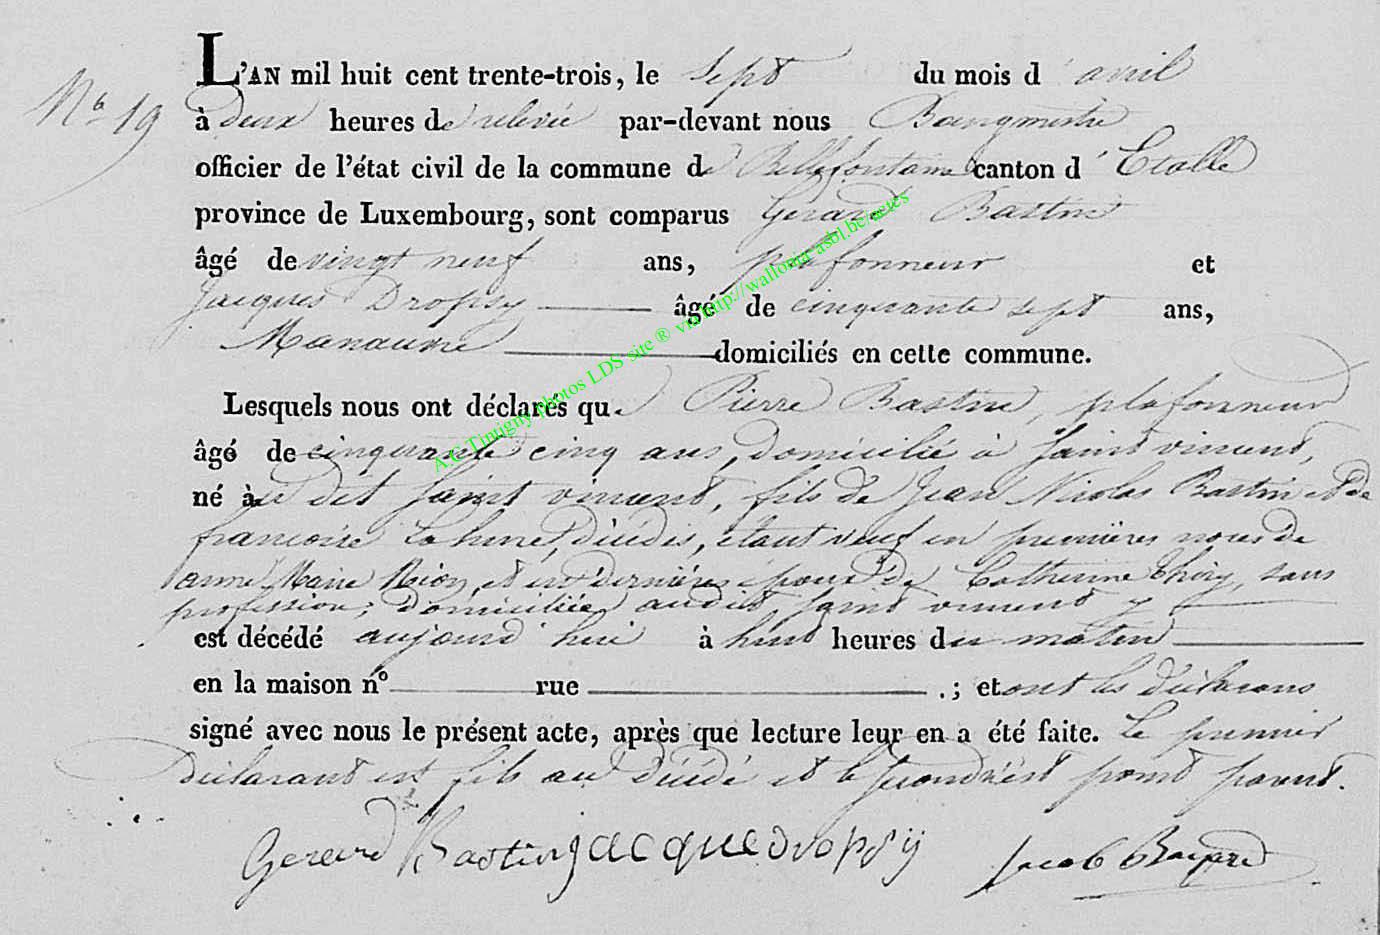 N° 19
L'AN mil huit cent trente-trois, le sept du mois d'avril
à deux heures de relevée par-devant nous Bourgmestre
officier de l'état civil de la commune de Bellefontaine canton d'Etalle
province de Luxembourg, sont comparus Gerard Bastin
âgé de vingt neuf ans, plafonneur et
Jacques Dropsy âgé de cinquante sept ans,
Manœuvre domiciliés en cette commune.
Lesquels nous ont déclarés que Pierre Bastin, plafonneur
âgé de cinquante cinq ans, domicilié à Saint vincent,
né à dit Saint vincent, fils de Jean Nicolas Bastin et de
francoise décédés, étant veuf en premières noces de
anne Marie et en dernières époux de Catherine Thiry, sans
profession, domiciliée audit Saint vincent
est décédé aujourd'hui à huit heures du matin
en la maison n° rue . ; et ont les déclarans
signé avec nous le présent acte, après que lecture leur en a été faite. Le premier
déclarant est fils au décédé et le second n'est point parent.
Gerard Bastin jacque dropsÿ Jacob Bayard
A.C Tintigny photos LDS site ® via http://wallonia-asbl.be/actes